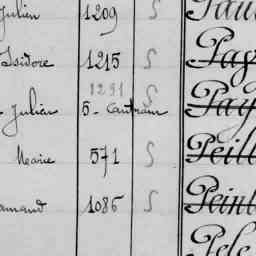 Julien 1209 S Pau
Isidore 1215 S Pag
1291 S
Julien 5 - Cantram Pay
Marie 571 S Peill
amand 1086 S Peint
Pele